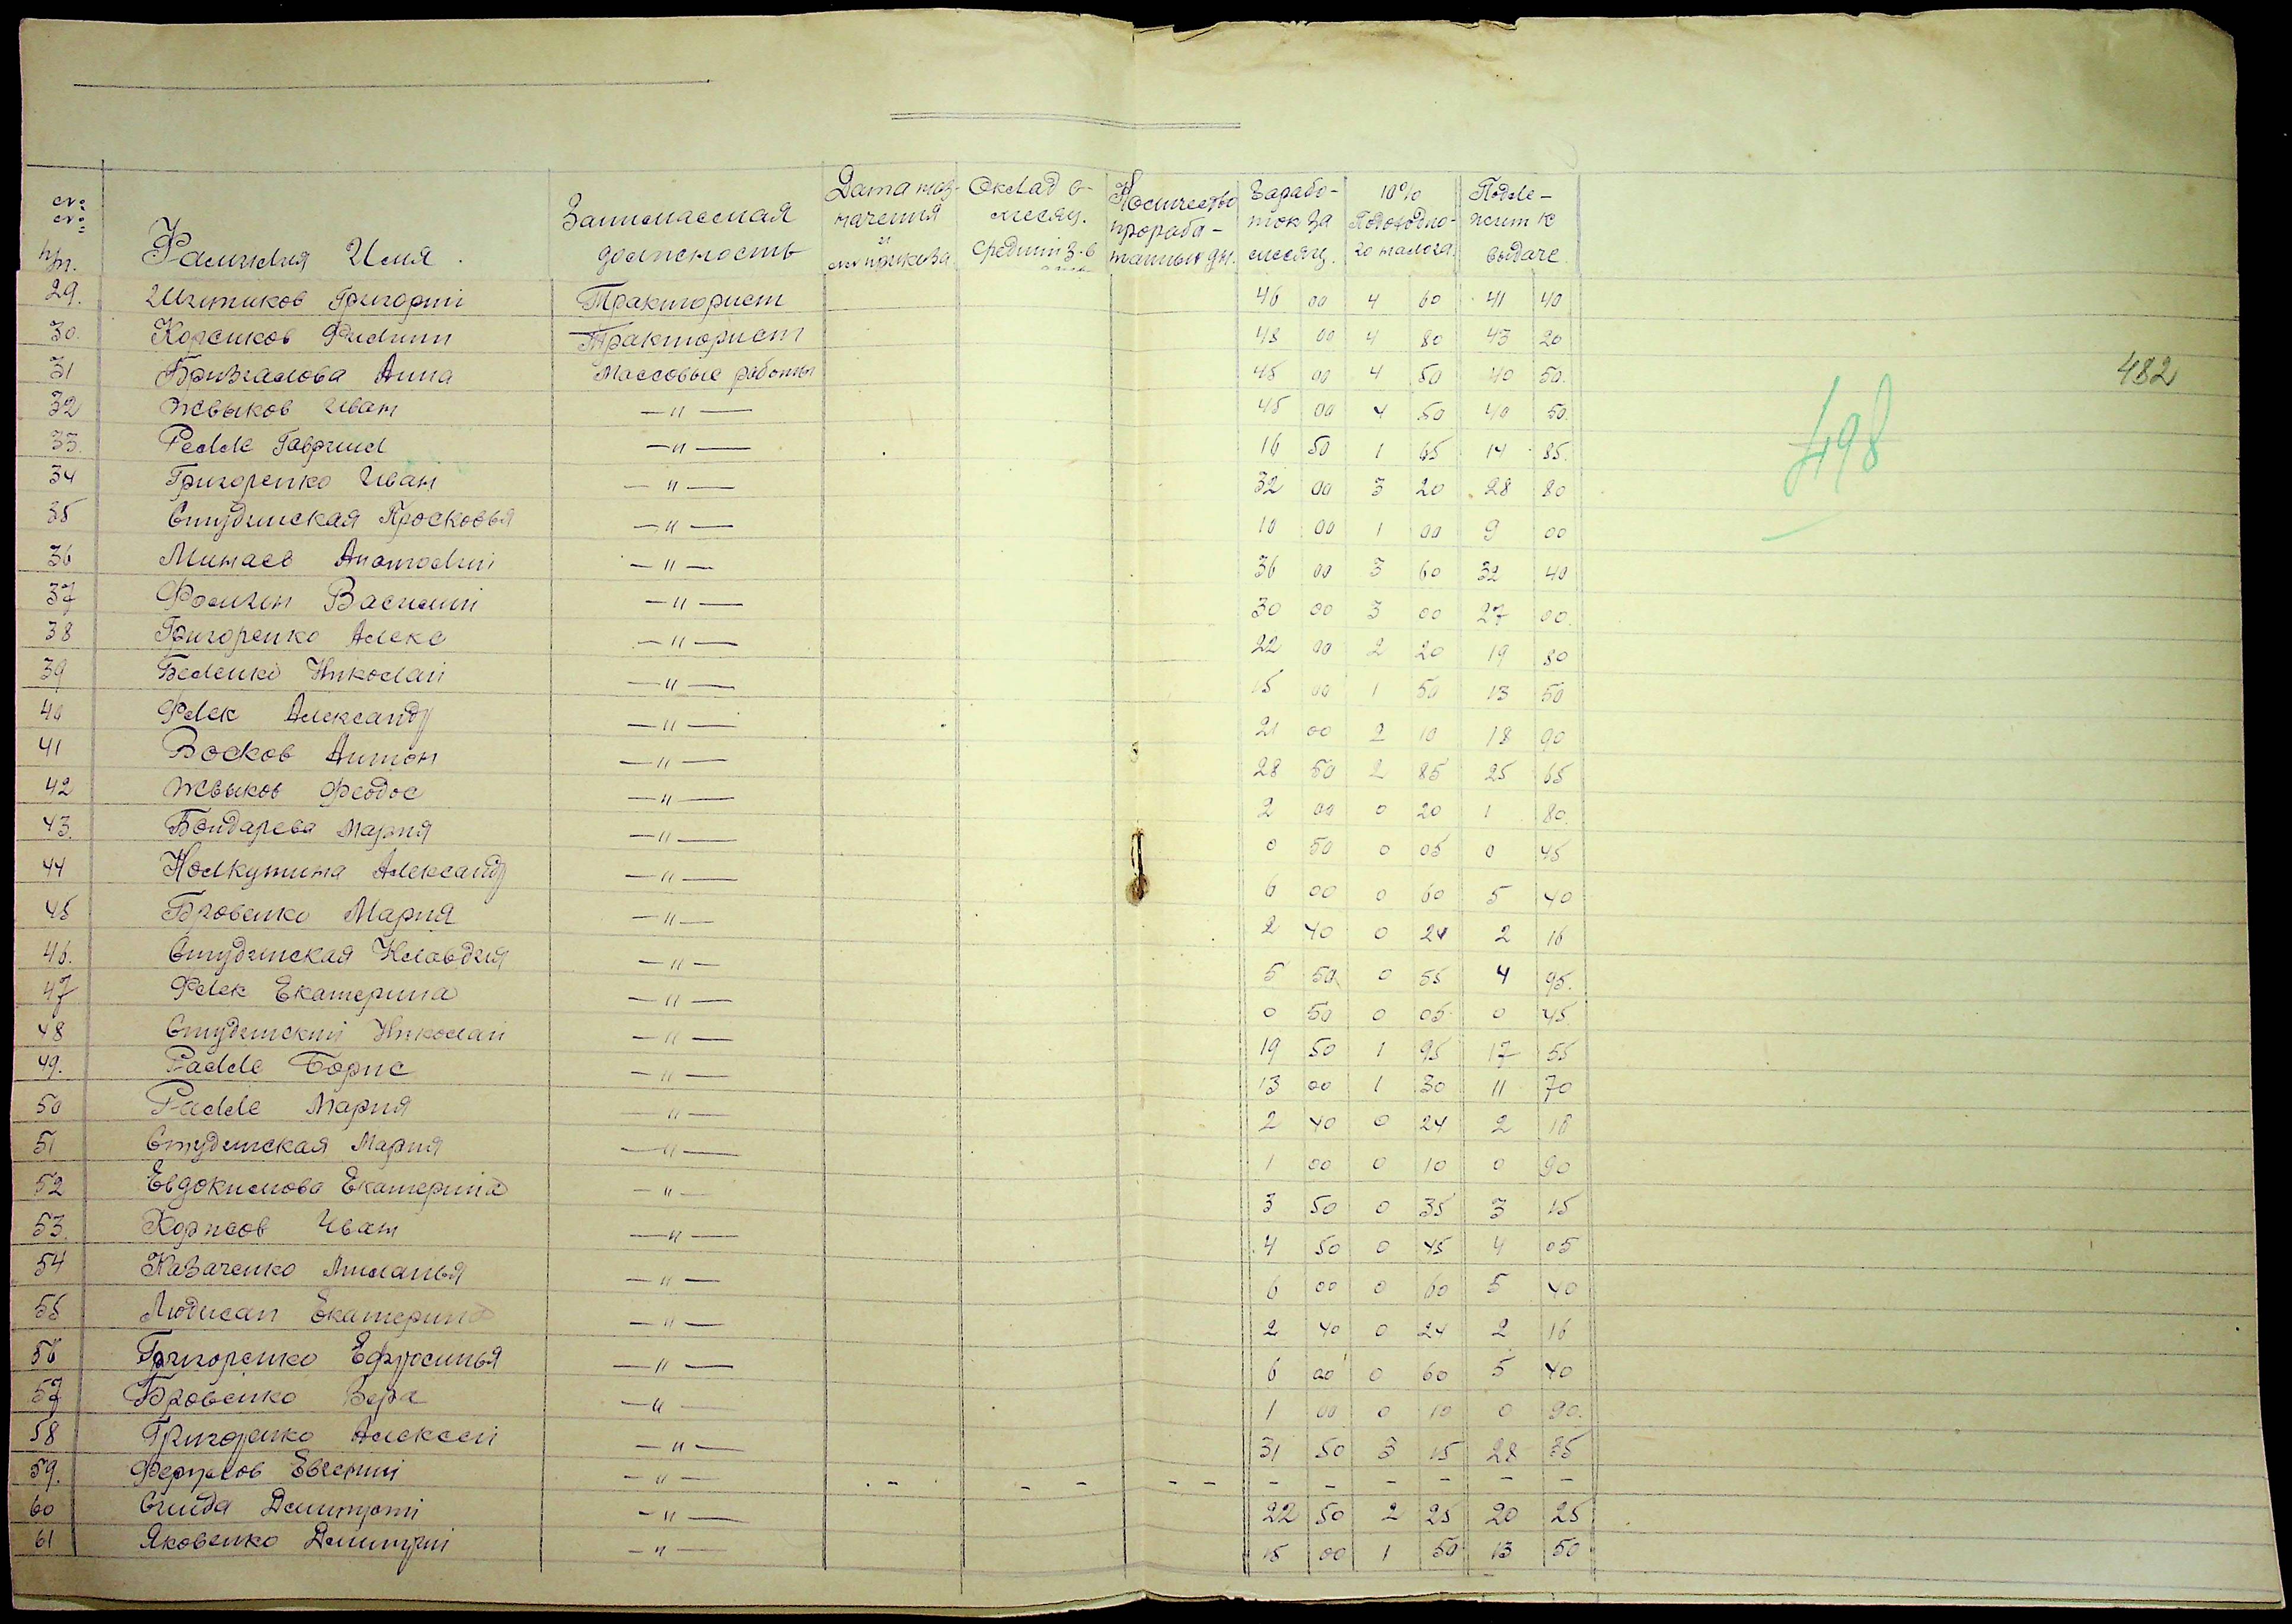 № № п/п. Фамилия Имя. Занимаемая должность Дата наз-начения и № приказа Оклад в-месяц. Средний з-в Количество прораба-танных дн. Зарабо-ток за месяц. 10% Подоходно-го налога Подле-жит к выдаче
29. Григорий Тракторист 46 00 4 60 41 40
30. Корсиков Филипп Тракторист 48 00 4 80 43 20
31 Бризгалова Анна Массовые работы 45 00 4 50 40 50.
482
32 Жвыков Иван —"— 45 00 4 50 40 50.
498
33. Редде Гавриил —"— 16 50 1 65 14 85.
34 Григоренко Иван —"— 32 00 3 20 28 80
35 Студинская Просковья —"— 10 00 1 00 9 00
36 Минаев Анатолий —"— 36 00 3 60 32 40
37 Фомин Василий —"— 30 00 3 00 27 00.
38 Григоренко Алекс —"— 22 00 2 20 19 80
39 Беленко Николай —"— 15 00 1 50 13 50
40 Флек Александр —"— 21 00 2 10 18 90
41 Волков Антон —"— 28 50 2 85 25 65
42 Жвыков Феодос —"— 2 00 0 20 1 80.
43. Бондарева Мария —"— 0 50 0 05 0 45
44 Александр —"— 6 00 0 60 5 40
45 Бровенко Мария —"— 2 40 0 24 2 16
46. Студинская Клавдия —"— 5 50 0 55 4 95.
47 Флек Екатерина —"— 0 50 0 05 0 45
48 Студинский Николай —"— 19 50 1 95 17 55
49. Радде Борис —"— 13 00 1 30 11 70
50 Радде Мария —"— 2 40 0 24 2 16
51 Студинская Мария —"— 1 00 0 10 0 90
52 Евдокимова Екатерина —"— 3 50 0 35 3 15
53. Иван —"— 4 50 0 45 4 05
54 Казаченко Миланья —"— 6 00 0 60 5 40
55 Екатерина —"— 2 40 0 24 2 16
56 Григоренко Ефросинья —"— 6 00 0 60 5 40
57 Бровенко Вера —"— 1 00 0 10 0 90.
58 Григоренко Алексей —"— 31 50 3 15 28 35
59. Евгений —"— - - - - - - - - - - - -
60 Дмитрий —"— 22 50 2 25 20 25
61 Яковенко Димитрий —"— 15 00 1 50 13 50